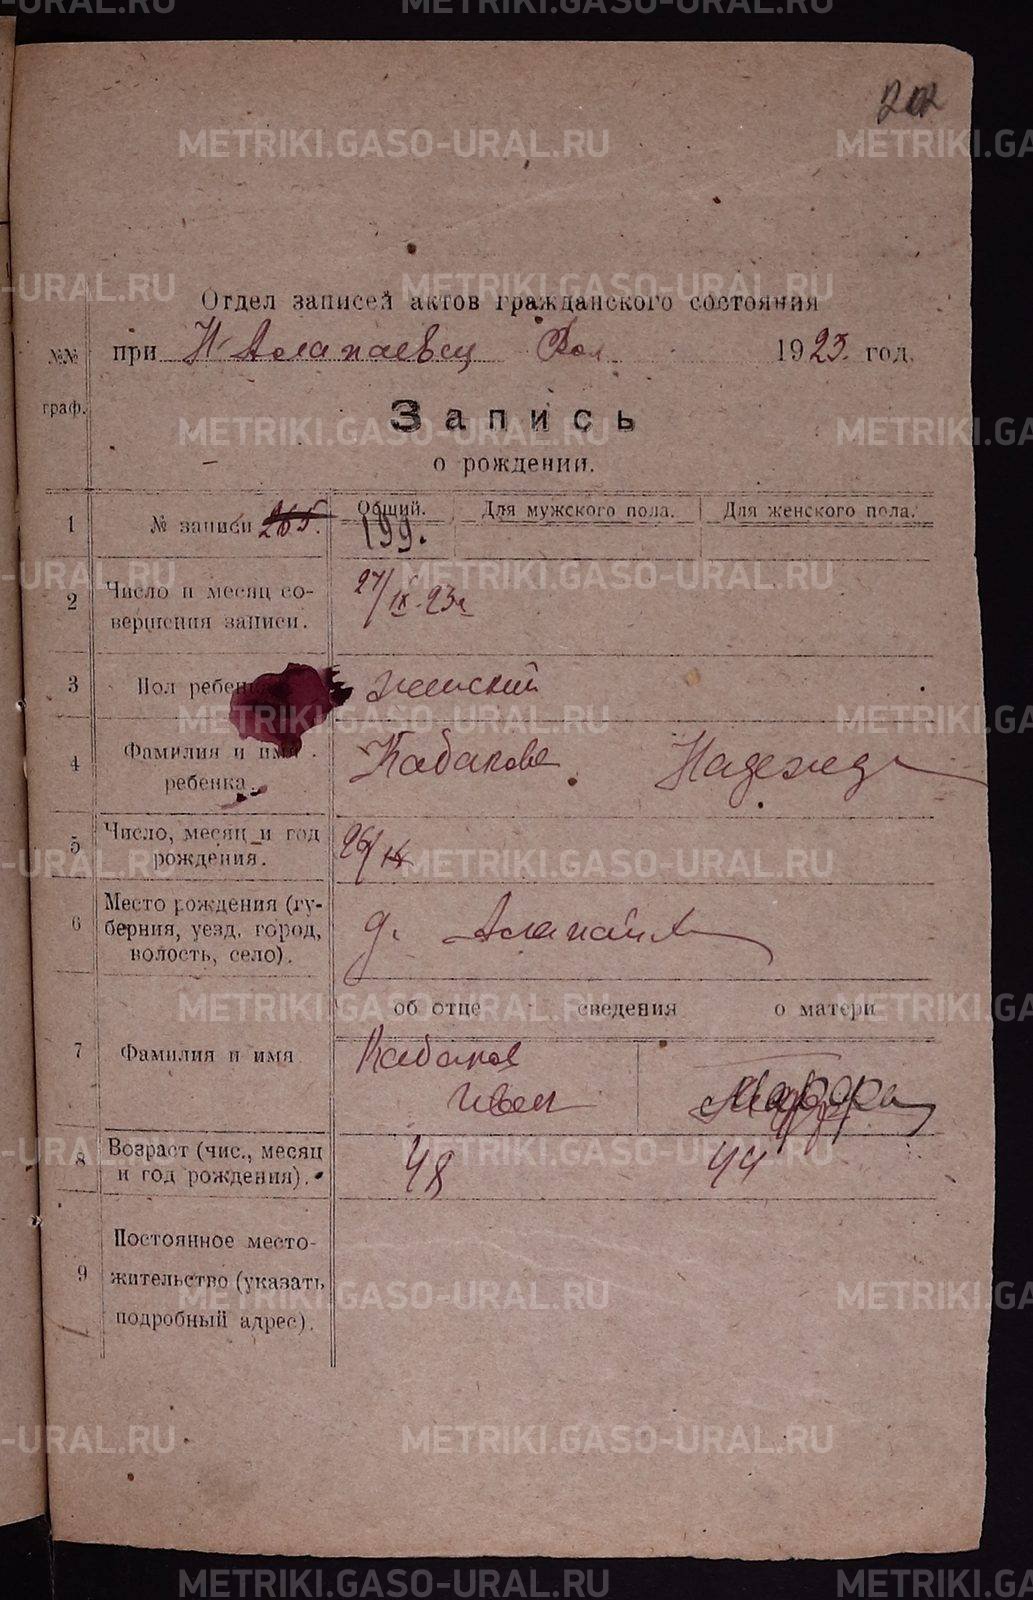 METRIKI.GASO-URAL.RU
202
Отдел записей актов гражданского состояния
№№ при Н-Алапаевск Вол. 1923 год.
граф.
Запись
о рождении.
1 № записи 265. Общий. Для мужского пола. Для женского пола.
199.
2 Число и месяц со-
вершения записи. 27/IX-23г
3 Пол ребенка женский
4 Фамилия и имя
ребенка. Кабакова Надежда
5 Число, месяц и год
рождения. 26/IX
6 Место рождения (гу-
берния, уезд, город,
волость, село). д. Алапаиха
об отце сведения о матери
7 Фамилия и имя Кабаков
Иван Марфа
8 Возраст (чис., месяц
и год рождения). 48 44
9 Постоянное место-
жительство (указать
подробный адрес).